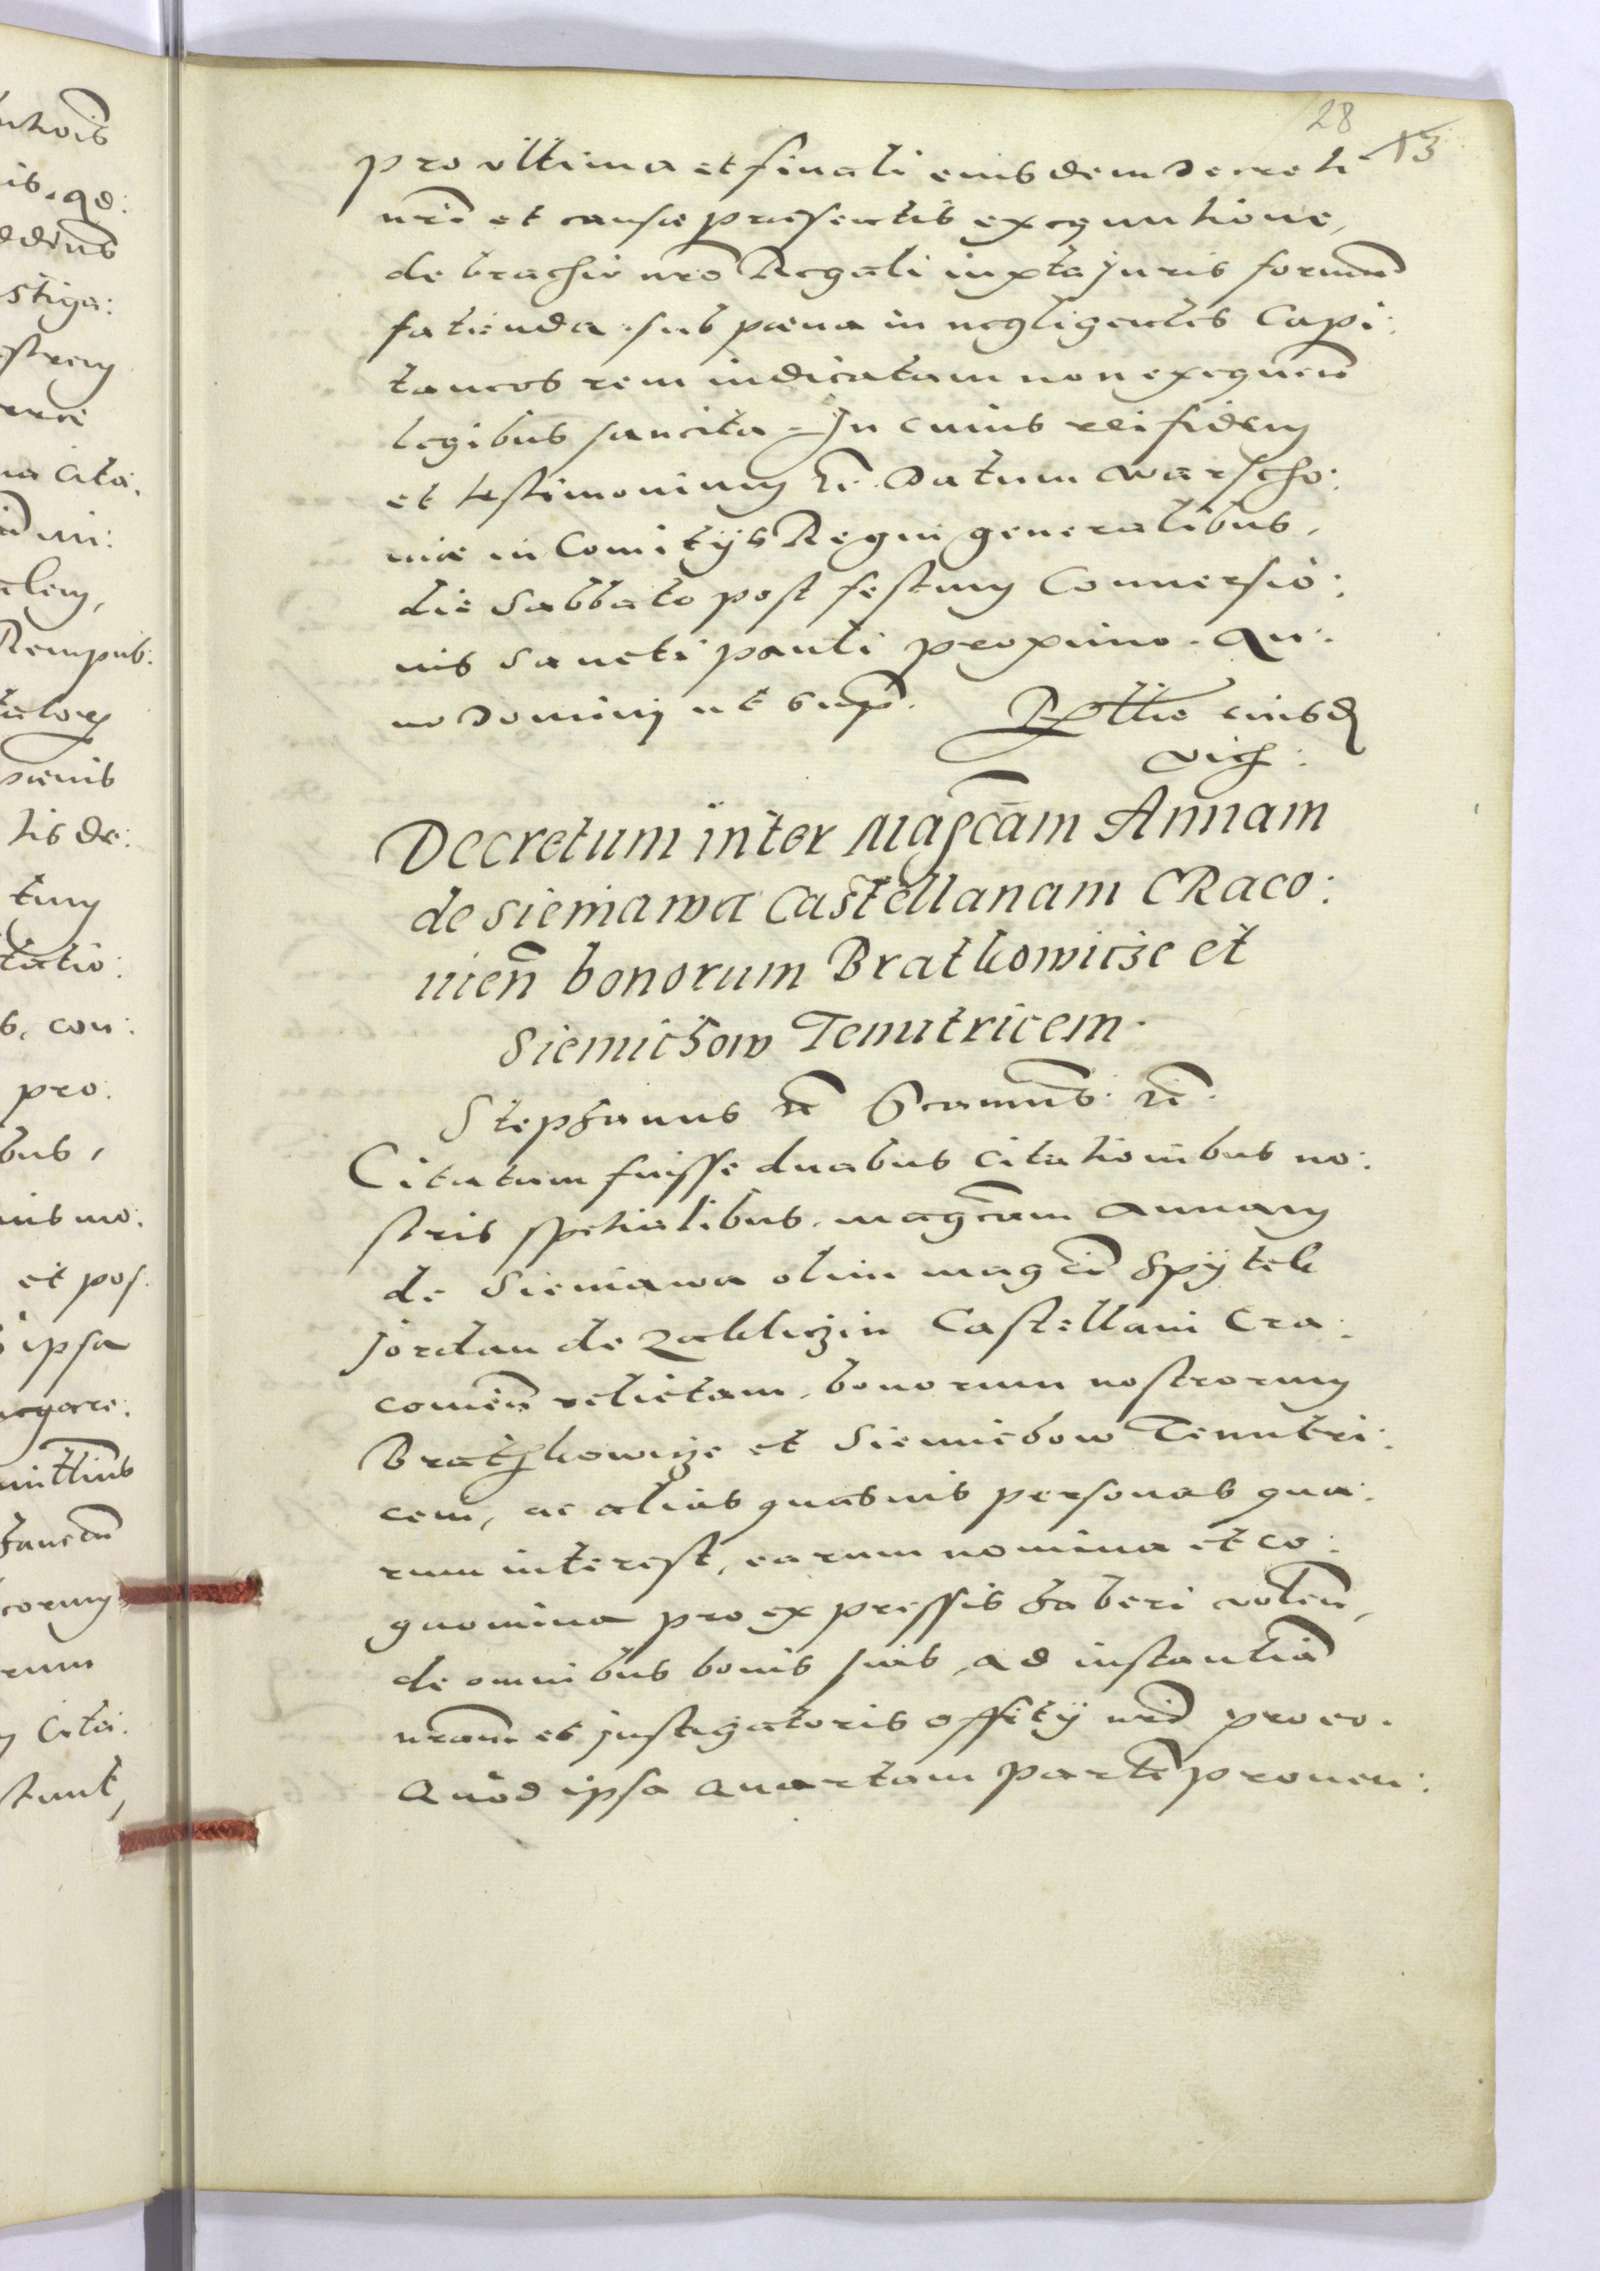 28
13
pro ultima et finali eiusdem Decreti
nrĩ et causæ præsentis exequutione,
de brachio nrõ Regali iuxta Juris formam
fatienda. sub pæna in negligentes Capi:
taneos rem iudicatam non exequen̄
legibus sancita. In cuius rei fidem
et testimonium &c. Datum Warscho:
uiæ in Comitijs Regni generalibus,
die Sabbato post festum Conuersio:
nis Sancti Pauli proximo. An:
no Dominj ut supr. Rltio eiusd
Vich:
Decretum inter Mag̃cam Annam
de sieniawa Castellanam CRaco:
uien̄ bonorum Bratkowicze et
Siemichow Tenutricem.
Stephanus &c Scamus: &c.
Citatum fuisse duabus citationibus no:
stris spetialibus. magcam Annam
de Sieniawa olim magci Spytek
Jordan de Zakliczin Castellani Cra:
couien̄ relictam, bonorum nostrorum
Bratkowicze et Siemichow Tenutri:
cem, ac alias quasuis personas qua:
rum interest, earum nomina et co:
gnomina pro expressis haberi volen̄,
de omnibus bonis suis, ad instantiã
nram et Justigatoris offitij nri pro eo.
Quòd ipsa Quartam partẽ prouen: